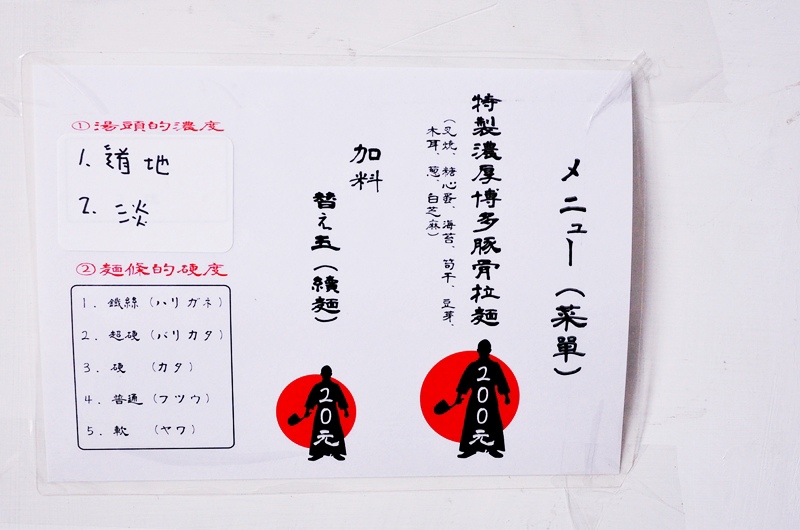 メニュー（菜單）
特製濃厚博多豚骨拉麵
（叉燒、糖心蛋、海苔、筍干、豆芽、
木耳、蔥、白芝麻）
200元
加料
替え玉（續麵）
20元
①湯頭的濃度
1. 道地
2. 淡
②麵條的硬度
1. 鐵絲（ハリガネ）
2. 超硬（バリカタ）
3. 硬（カタ）
4. 普通（フツウ）
5. 軟（ヤワ）